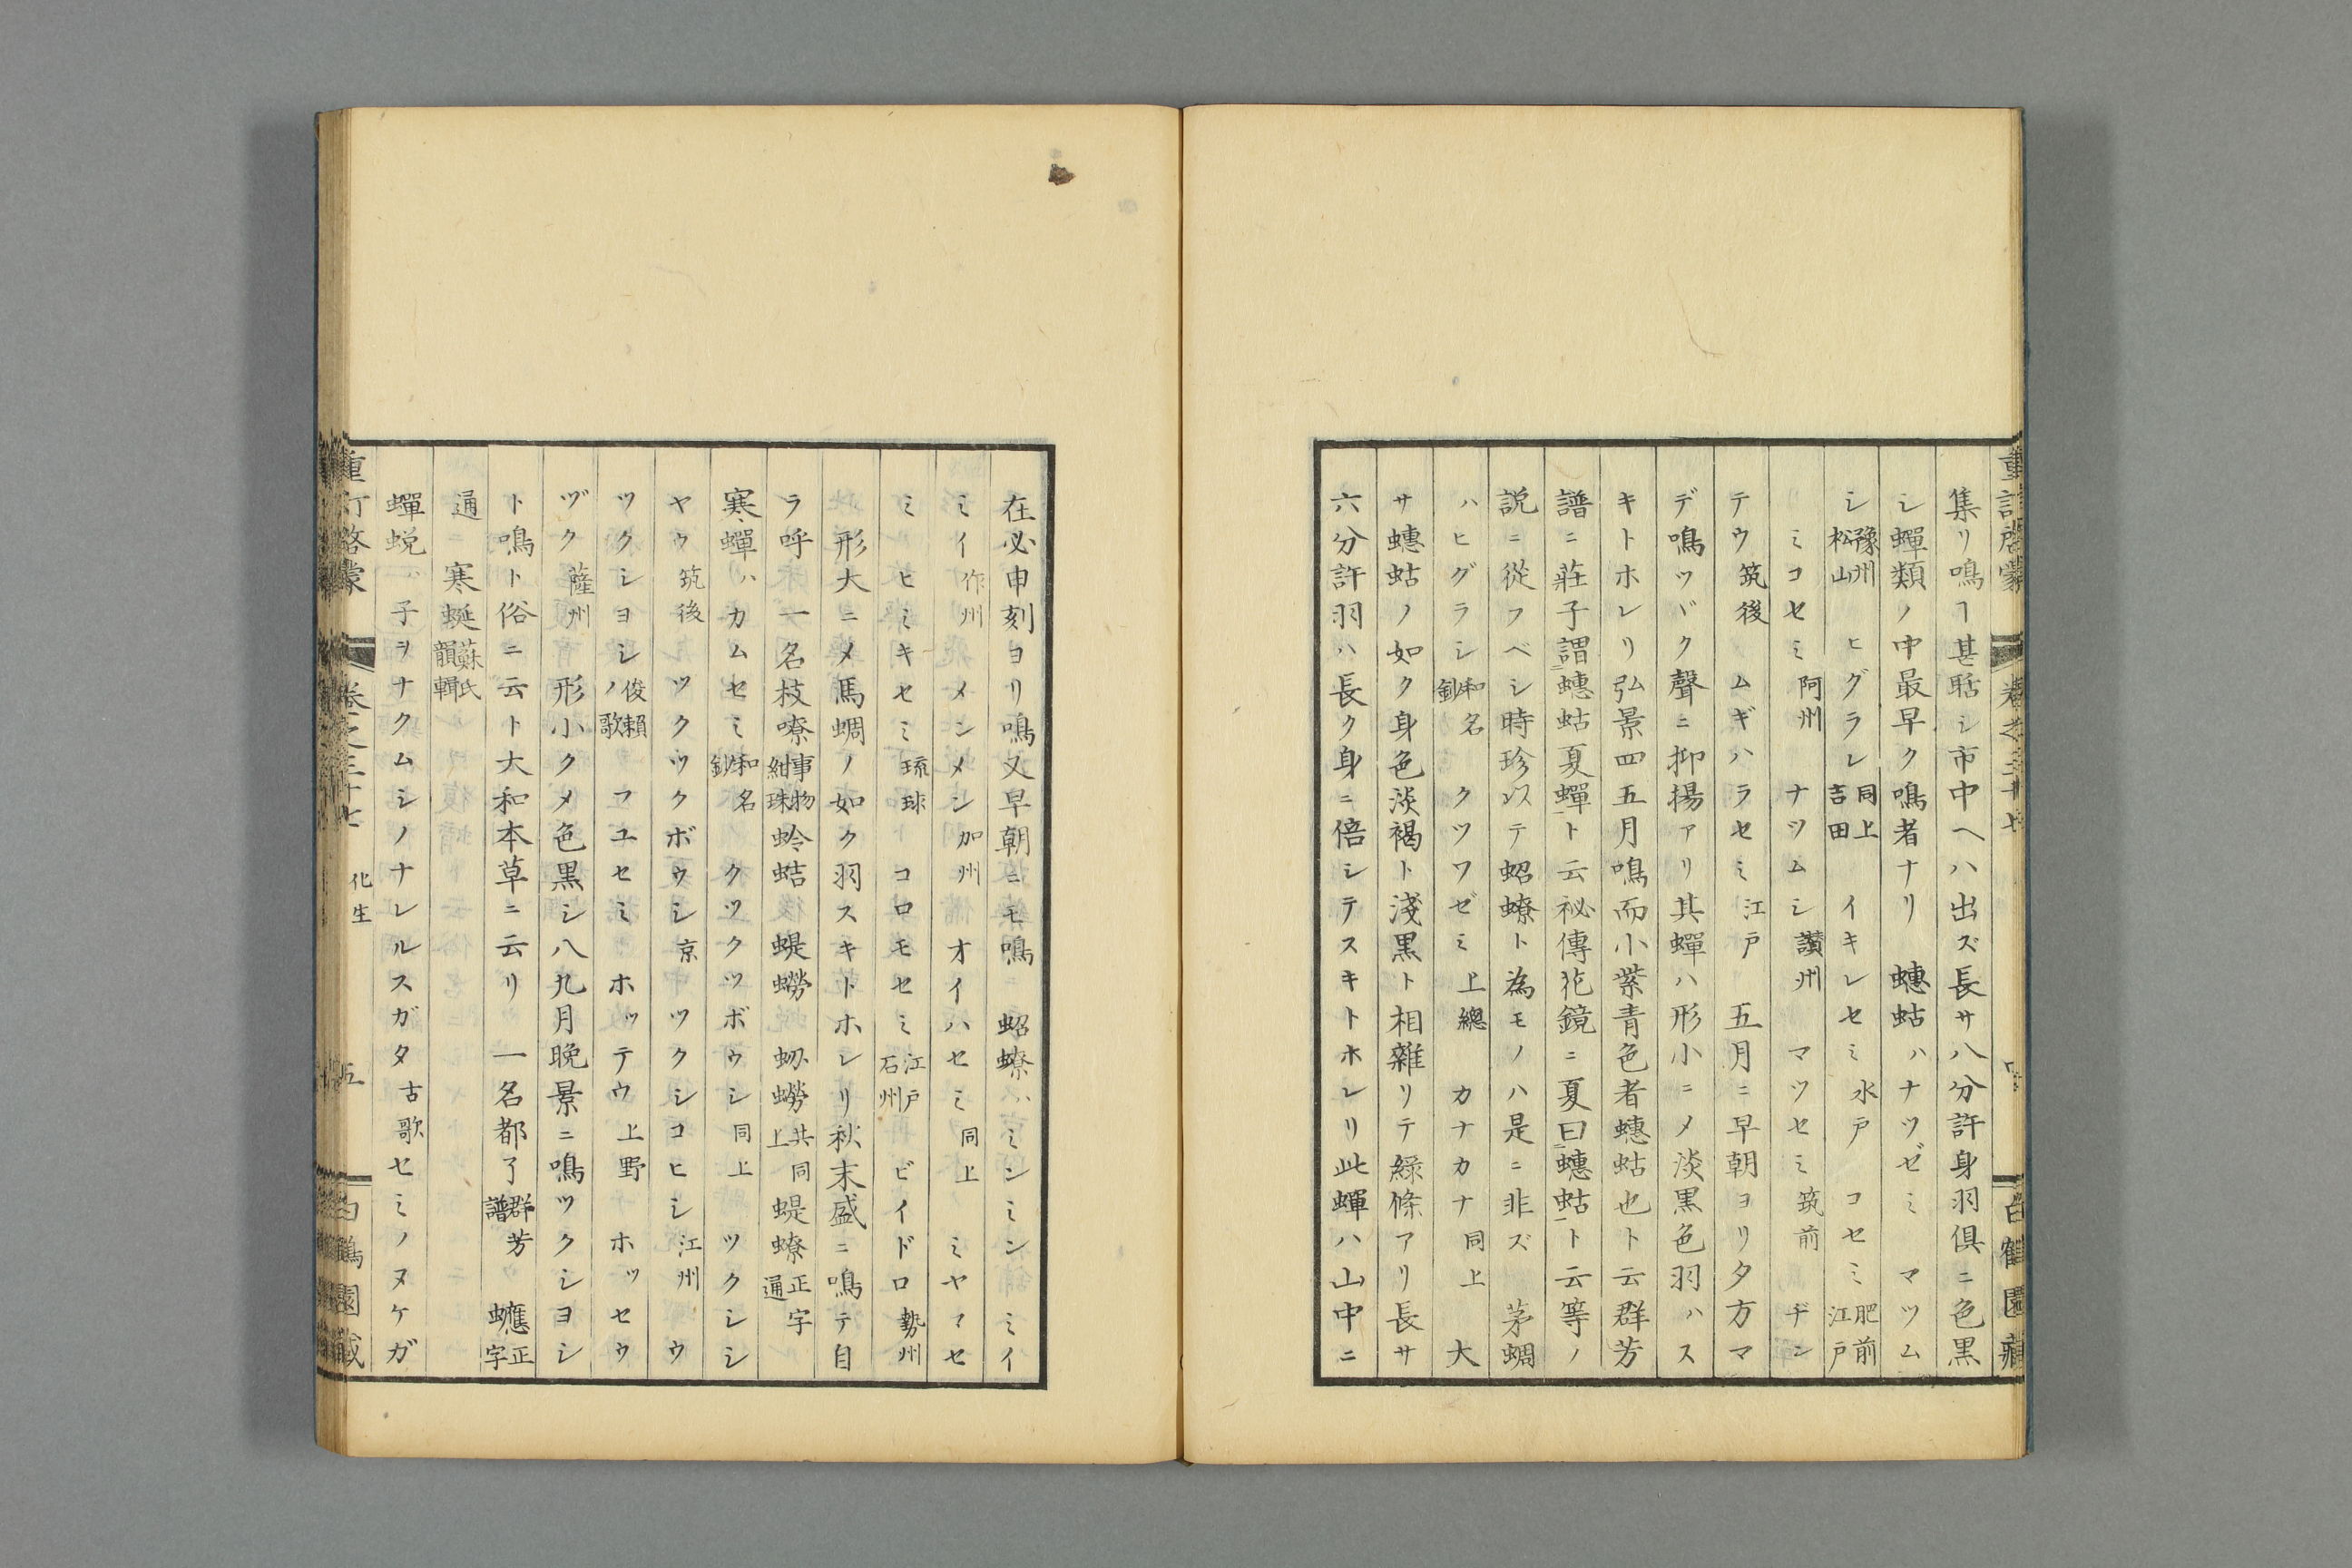 重訂啓蒙 卷之三十七 白鶴園藏
集リ鳴ヿ甚聒シ市中ヘハ出ズ長サ八分許身羽俱ニ色黒
シ蟬類ノ中最早ク鳴者ナリ 蟪蛄ハナツゼミ マツム
シ豫州松山 ヒグラシ同上吉田 イキレセミ水戸 コセミ肥前江戸
ミコセミ阿州 ナツムシ讚州 マツセミ筑前 ヂン
テウ筑後 ムギハラセミ江戸 五月ニ早朝ヨリ夕方マ
デ鳴ツヾク聲ニ抑揚アリ其蟬ハ形小ニメ淡黒色羽ハス
キトホレリ弘景四五月鳴而小紫青色者蟪蛄也ト云群芳
譜ニ莊子謂蟪蛄夏蟬ト云祕傳花鏡ニ夏曰蟪蛄ト云等ノ
説ニ從フベシ時珍以テ蛁蟟ト為モノハ是ニ非ズ 茅蜩
ハヒグラシ和名鈔 クツワゼミ上總 カナカナ同上 大
サ蟪蛄ノ如ク身色淡褐ト淺黒ト相雜リテ綠條アリ長サ
六分許羽ハ長ク身ニ倍シテスキトホレリ此蟬ハ山中ニ
在必申刻ヨリ鳴又早朝ニモ鳴 蛁蟟ハミンミン ミイ
ミイ作州 メンメン加州 オイハセミ同上 ミヤマセ
ミ ヒミキセミ琉球 コロモセミ江戸石州 ビイドロ勢州
形大ニメ馬蜩ノ如ク羽スキトホレリ秋末盛ニ鳴テ自
ラ呼 一名枝嘹事物紺珠 蛉蛣 蝭蟧 蚴蟧共同上 蝭蟟正字通
寒蟬ハカムセミ和名鈔 クツクツボウシ同上 ツクシシ
ヤウ筑後 ツクツクボウシ京 ツクシコヒシ江州 ウ
ツクシヨシ俊頼ノ歌 フユセミ ホッテウ上野 ホッセウ
ヅク薩州 形小クメ色黒シ八九月晩景ニ鳴ツクシヨシ
ト鳴ト俗ニ云ト大和本草ニ云リ 一名都了群芳譜 蟅正字
通 寒蜒蘇氏韻輯
蟬蛻ハ子ヲナクムシノナレルスガタ古歌セミノヌケガ
重訂啓蒙 卷之三十七 化生 五 白鶴園藏